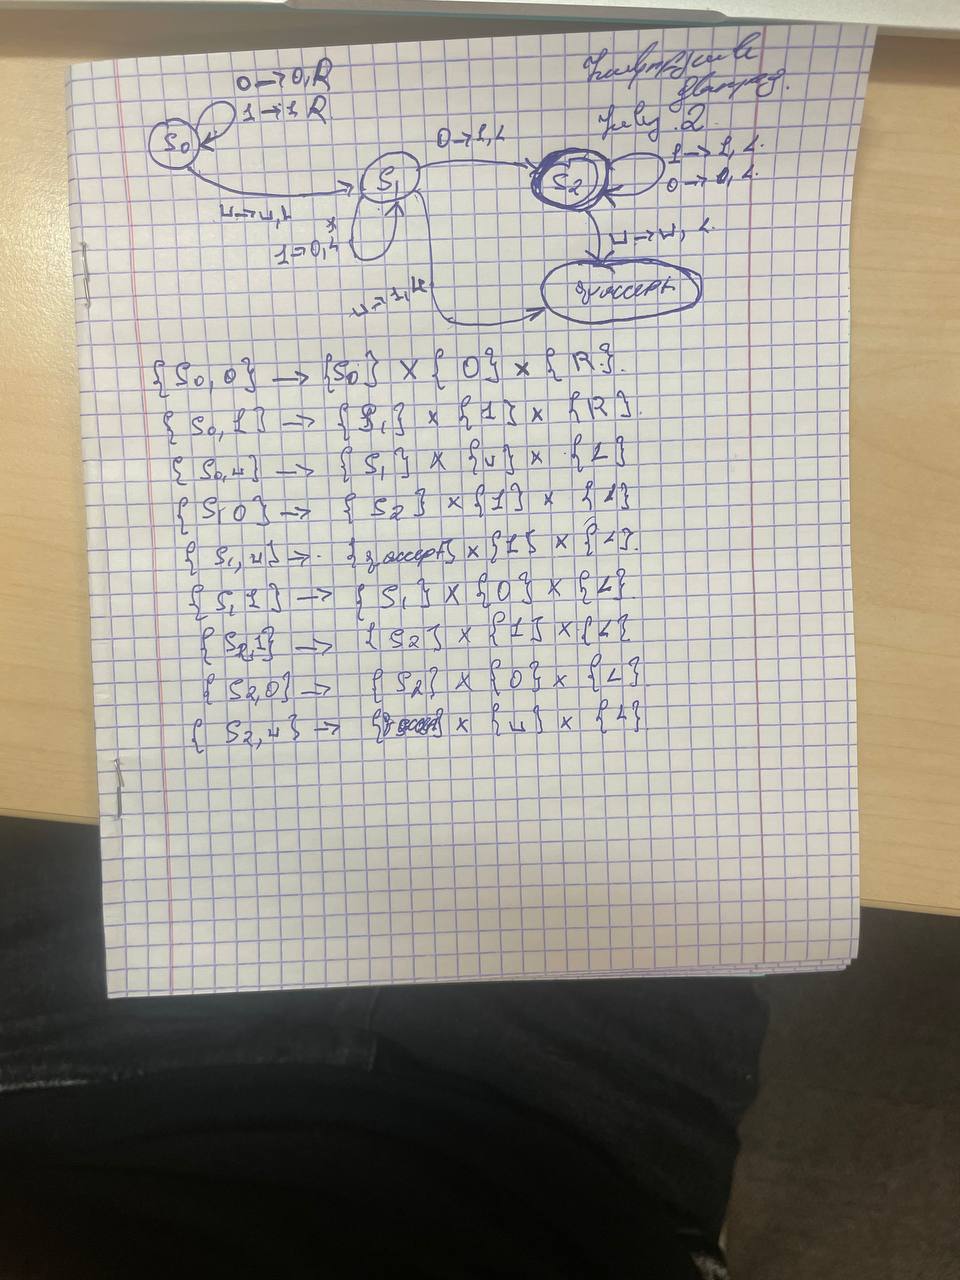 0→0,R
1→1 R
S0
⊔→⊔,L
S1
1→0,L
0→1,L
⊔→1,L
2.
S2
1→1, L.
0→0, L.
⊔→⊔, L.
qaccept
{S0,0} → {S0} × {0} × {R}.
{S0,1} → {S1} × {1} × {R}.
{S0,⊔} → {S1} × {⊔} × {L}
{S1 0} → {S2} × {1} × {L}
{S1,⊔} → {qaccept} × {1} × {L}.
{S1 1} → {S1} × {0} × {L}.
{S2,1} → {S2} × {1} × {L}
{S2,0} → {S2} × {0} × {L}
{S2,⊔} → × {⊔} × {L}